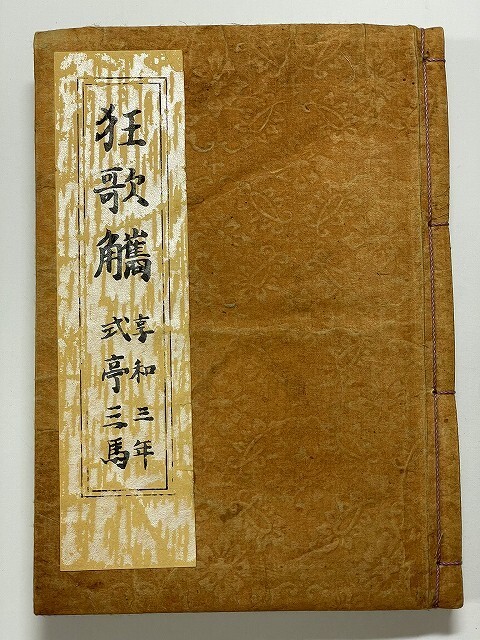 狂歌觿
享和三年
式亭三馬